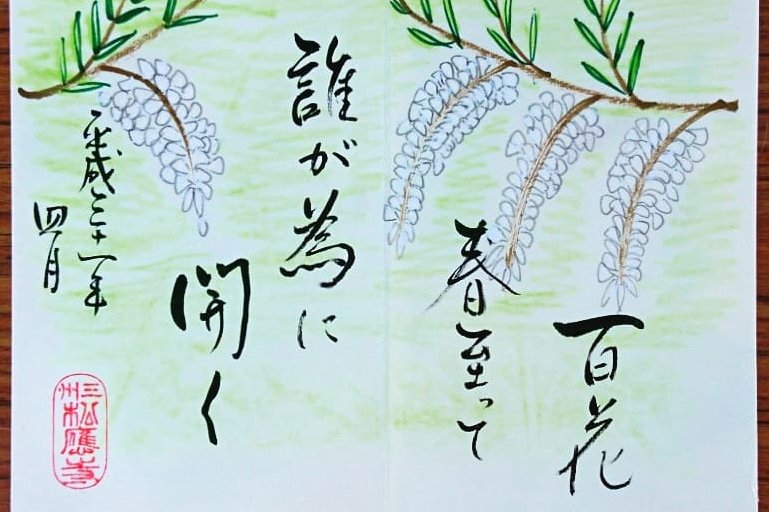 百花
春至って
誰が為に
開く
平成三十一年
四月
三州松應寺